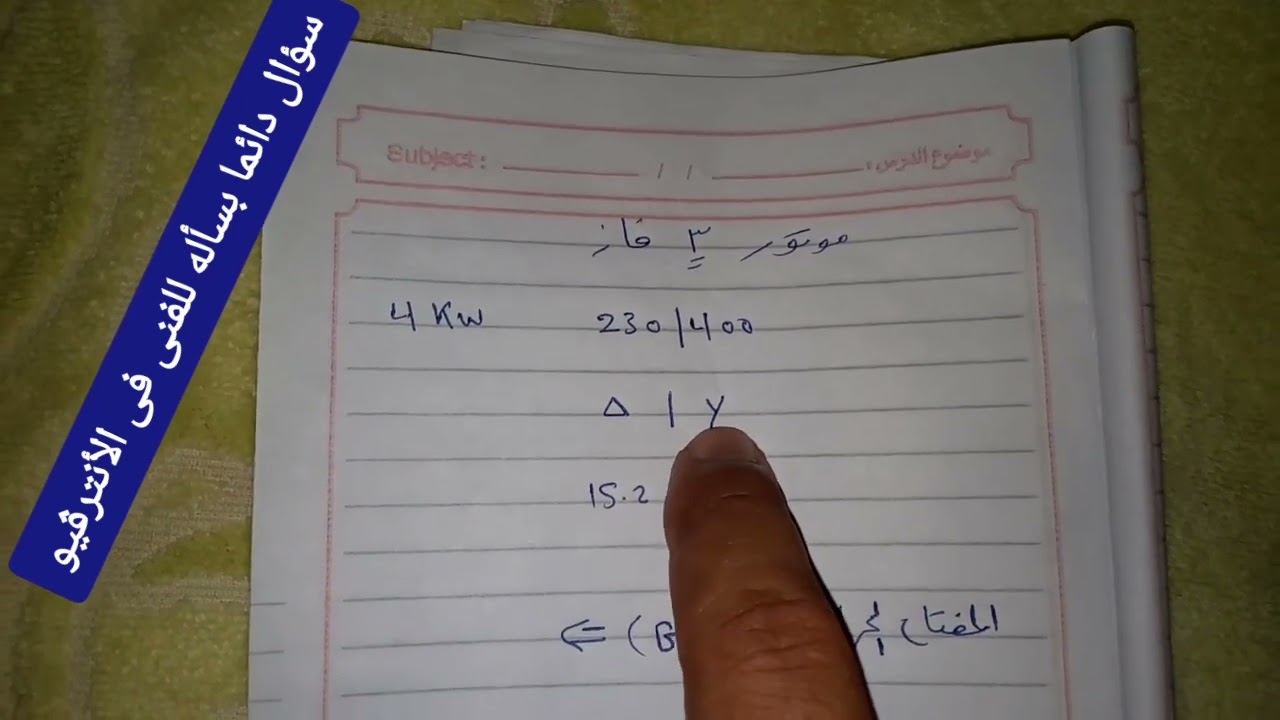 سؤال دائما بسأله للفنى فى الأنترفيو
Subject: / / موضوع الدرس:
موتور ٣ فاز
4 KW 230/400
Δ | Y
15.2
المفتاح (B ⇐